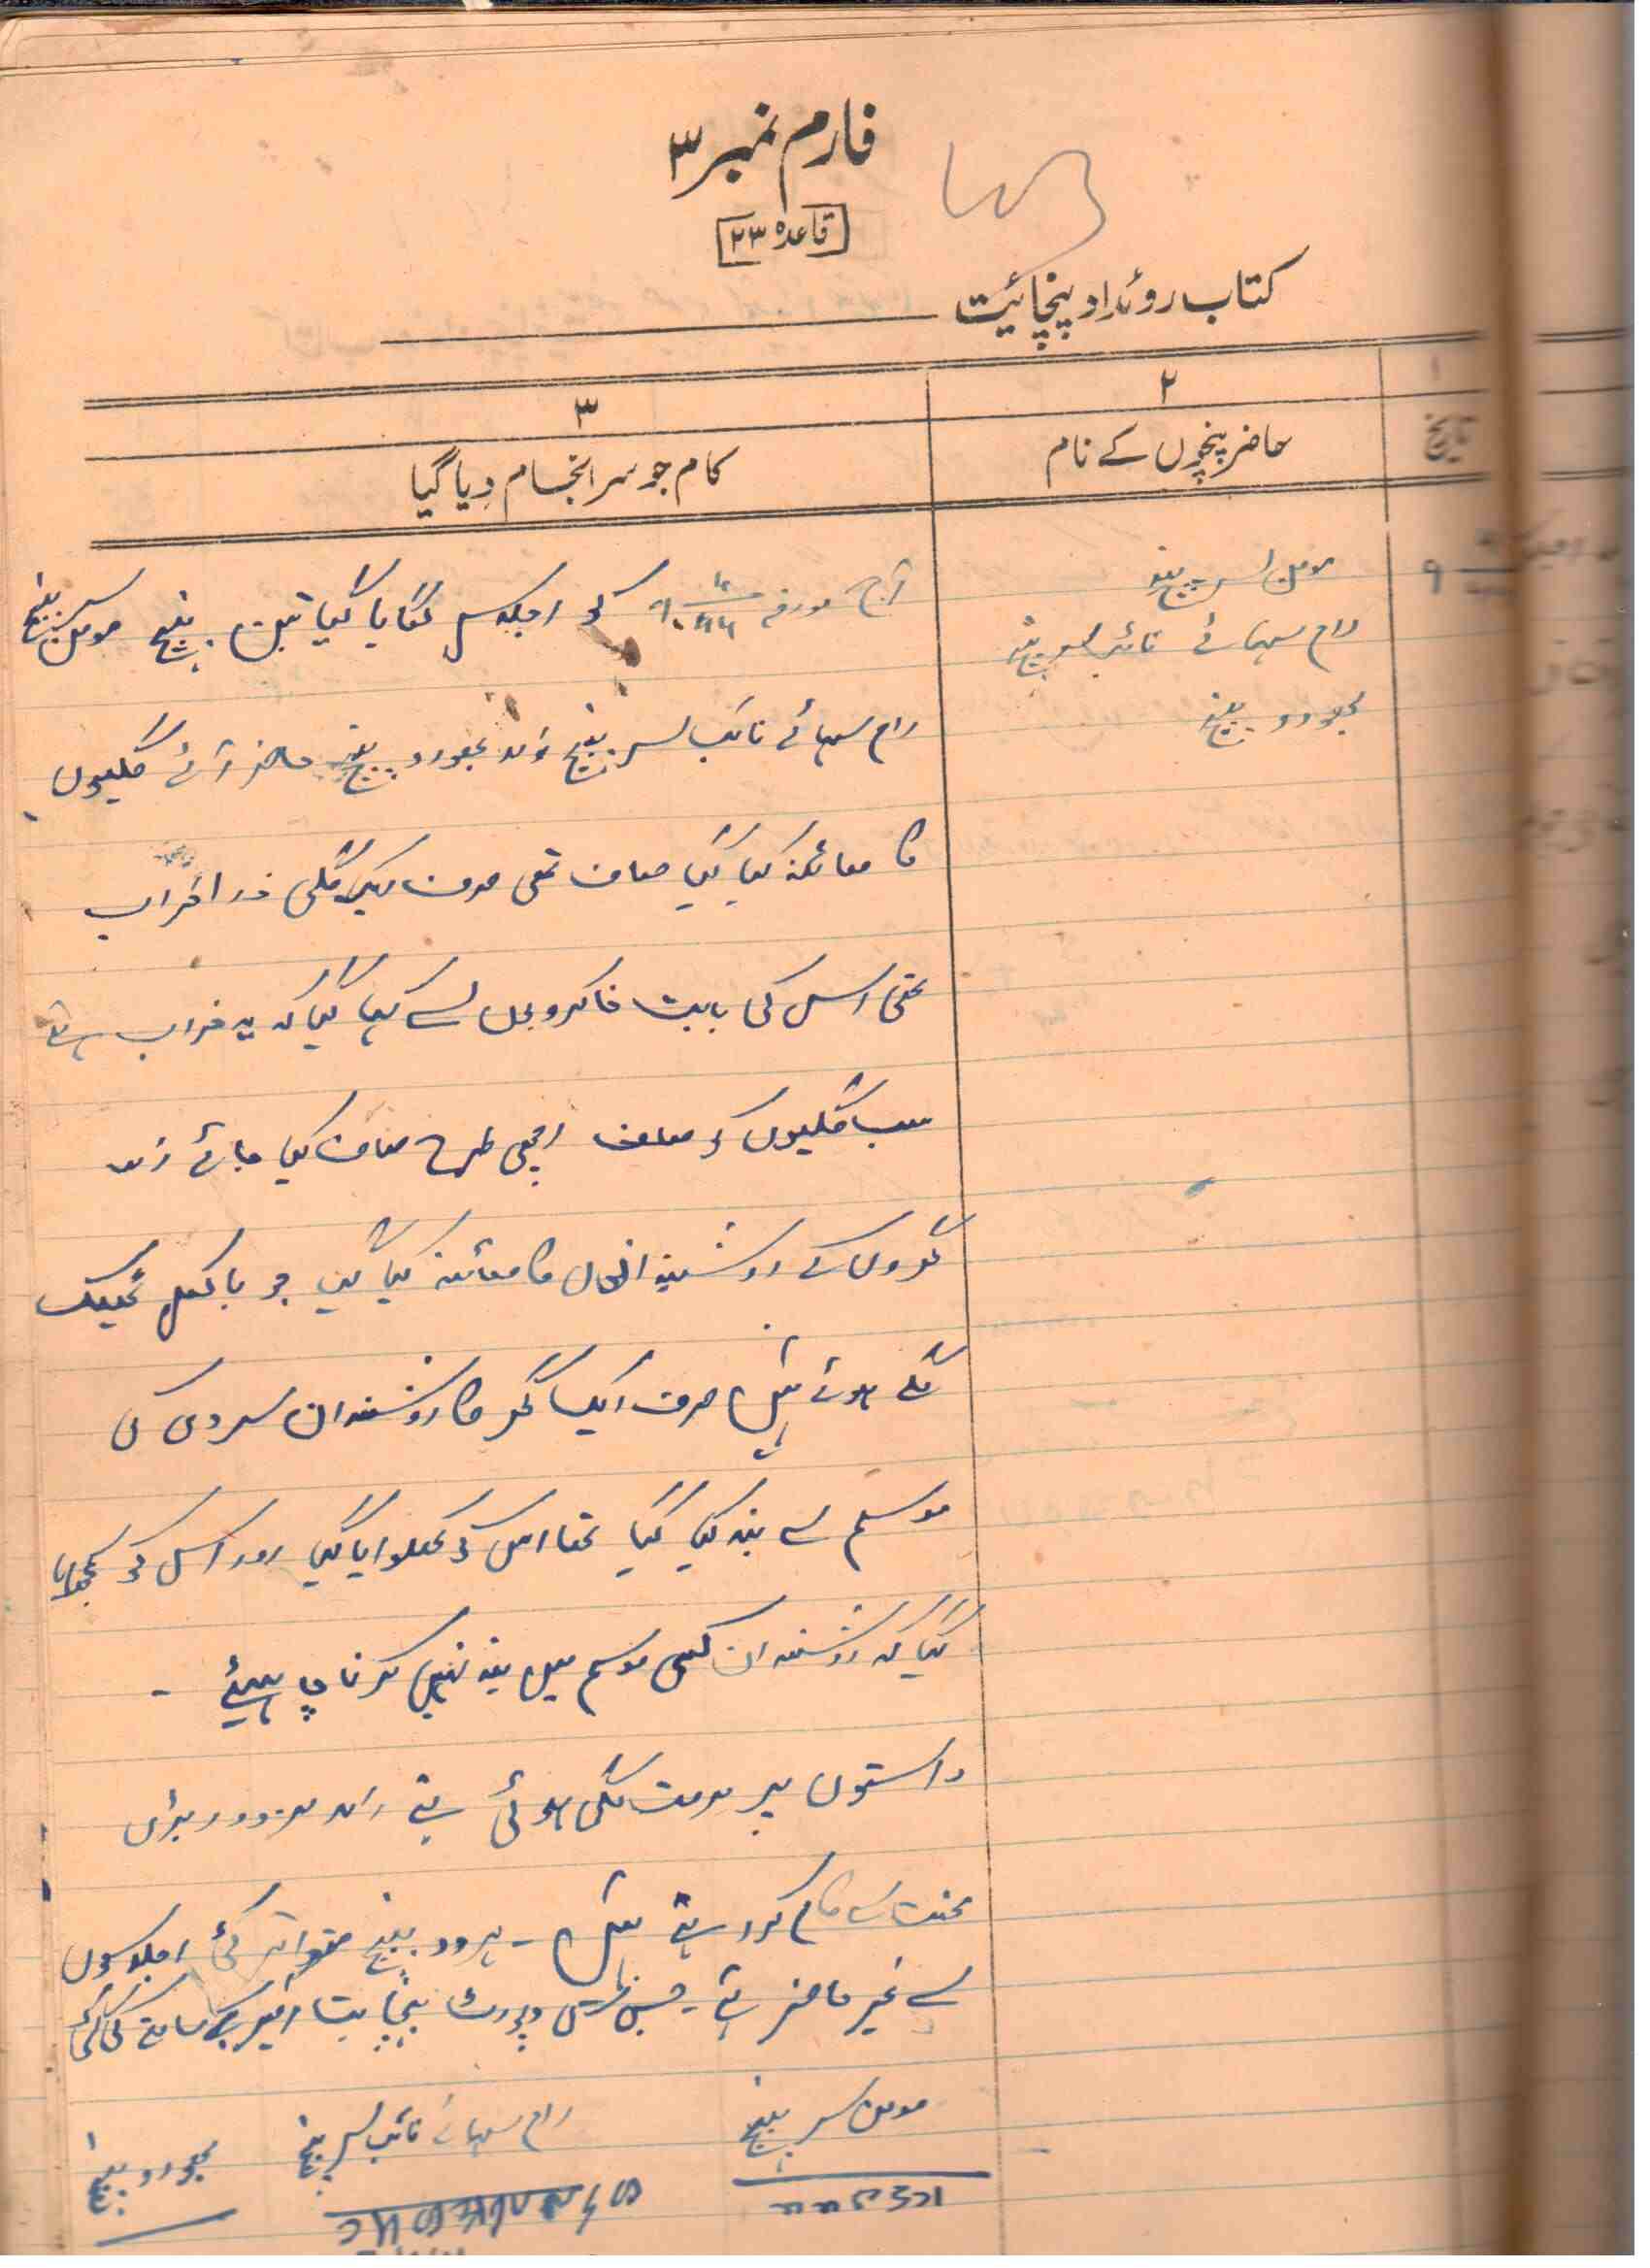 فارم نمبر ۳
[قاعدہ ۲۳]
کتاب روئداد پنچائیت
۱
۲
۳
تاریخ
حاضر پنچوں کے نام
کام جو سرانجام دیا گیا
سرپنچ
رام سہائے نائب سرپنچ
پنچ
آج مورخہ کو اجلاس لگایا گیا تین پنچ سرپنچ
رام سہائے نائب سرپنچ اور پنچ حاضر آئے گلیوں
کا معائنہ کیا گیا صاف تھی صرف ایک گلی ذرا خراب
تھی اس کی بابت خاکروبان سے کہا گیا کہ یہ خراب ہے
سب گلیوں کو صاف اچھی طرح صاف کیا جائے اور
گھروں کے روشندان کا معائنہ کیا گیا جو بالکل ٹھیک
لگے ہوئے ہیں صرف ایک گھر کا روشندان سردی کی
موسم سے بند کیا گیا تھا اس کو کھلوایا گیا اور اس کو سمجھایا
گیا کہ روشندان کسی موسم میں بند نہیں کرنا چاہیئے ۔
راستوں پر مرمت لگی ہوئی ہے اور مزدور بڑی
محنت سے کام کر رہے ہیں ۔ ہردو پنچ متواتر کئی اجلاسوں
سے غیر حاضر ہے ۔ جس کی رپورٹ پنچایت افسر کے سامنے کی گئی
سرپنچ
رام سہائے نائب سرپنچ
پنچ